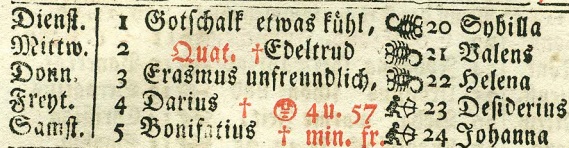 Dienst. 1 Gotschalk etwas kühl, 20 Sybilla
Mittw. 2 Quat. †Edeltrud 21 Valens
Donn. 3 Erasmus unfreundlich, 22 Helena
Freyt. 4 Darius † 4 u. 57 23 Desiderius
Samst. 5 Bonifatius † min. fr. 24 Johanna